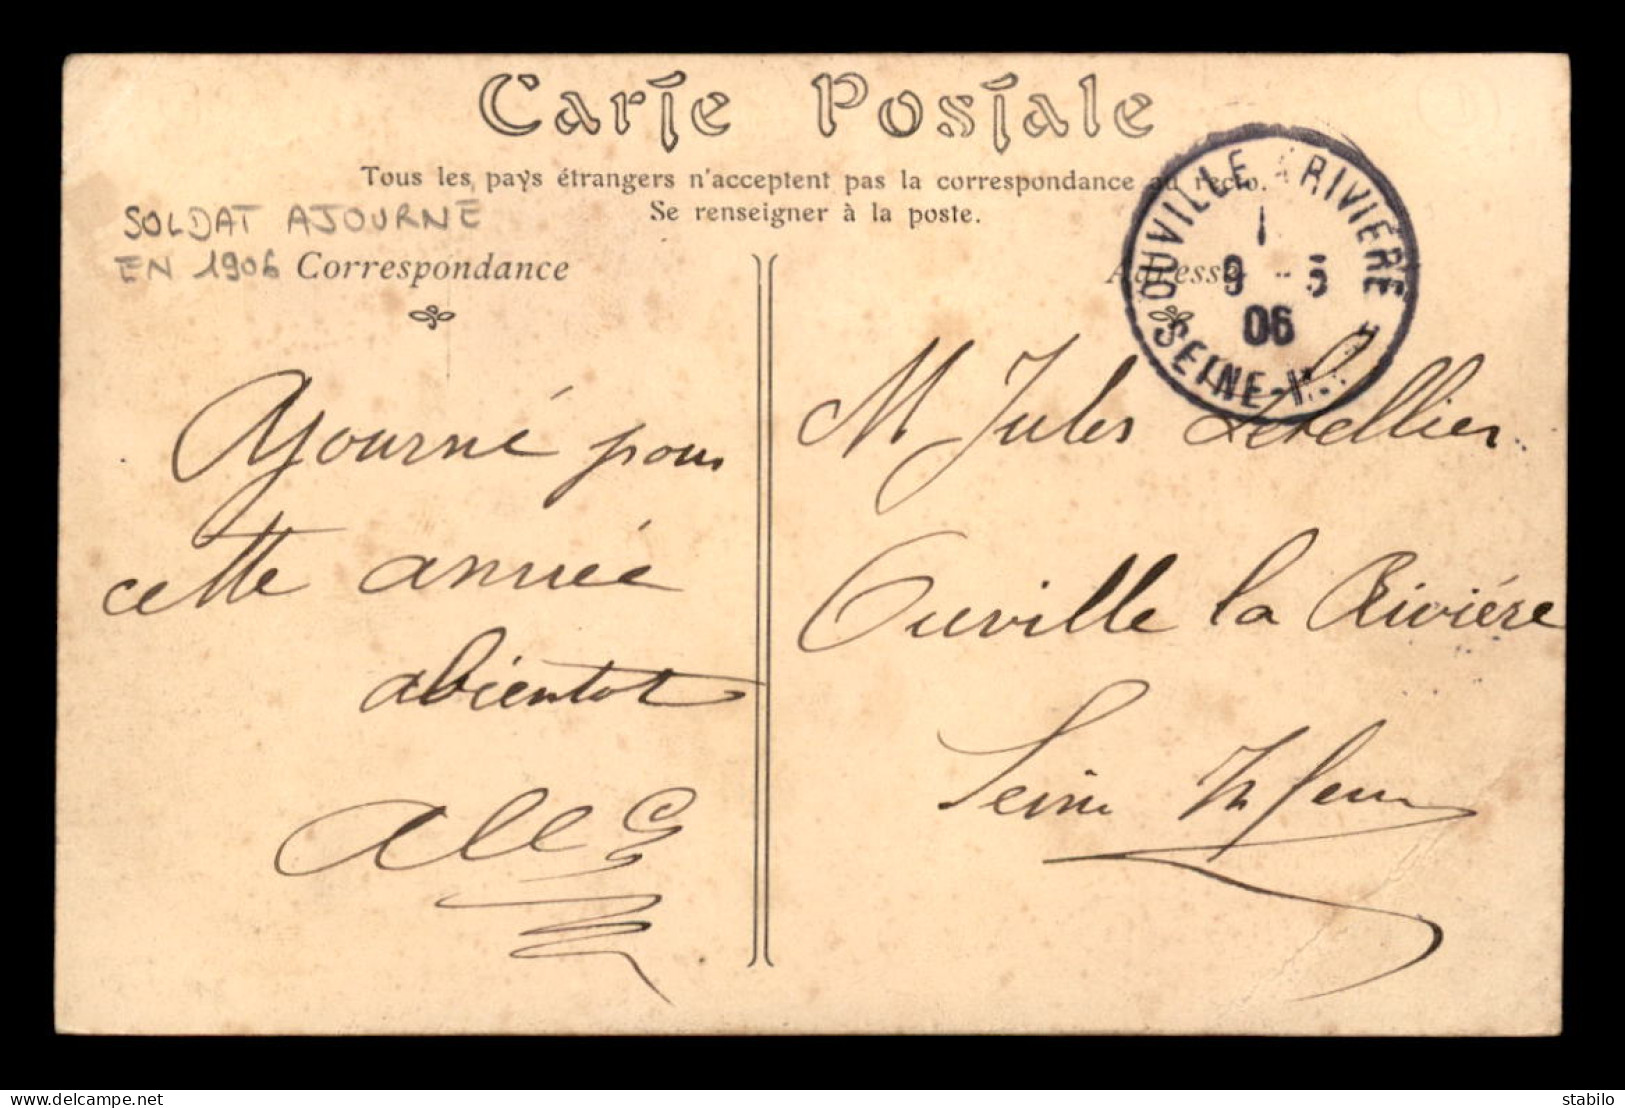 Carte Postale
Tous les pays étrangers n'acceptent pas la correspondance au recto.
Se renseigner à la poste.
SOLDAT AJOURNE
EN 1906
Correspondance
Adresse
OUVILLE RIVIÈRE
9 -5
06
SEINE-
Ajourné pour
cette année
abientot
M Jules Letellier
Ouville la Rivière
Seine Inferre
delcampe.net
stabilo